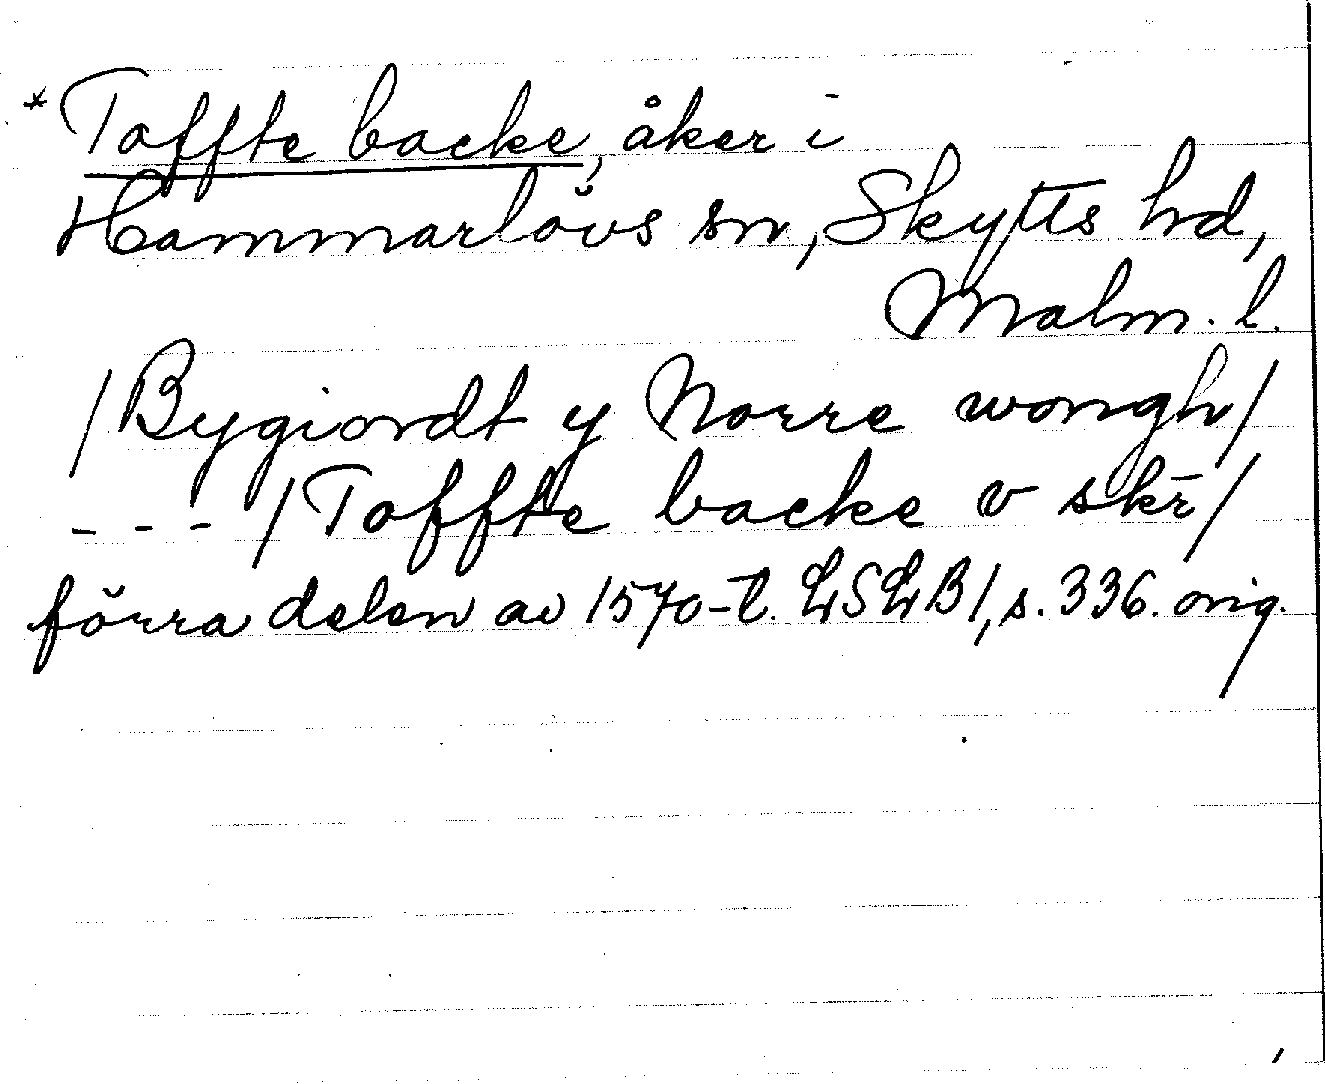 *Toffte backe, åker i
Hammarlövs sn, Skytts hd,
Malm. l.
/Bygiordt y Norre wongh/
--- /Toffte backe v skr̄/
förra delen av 1570-t. LSLB1, s. 336. orig.